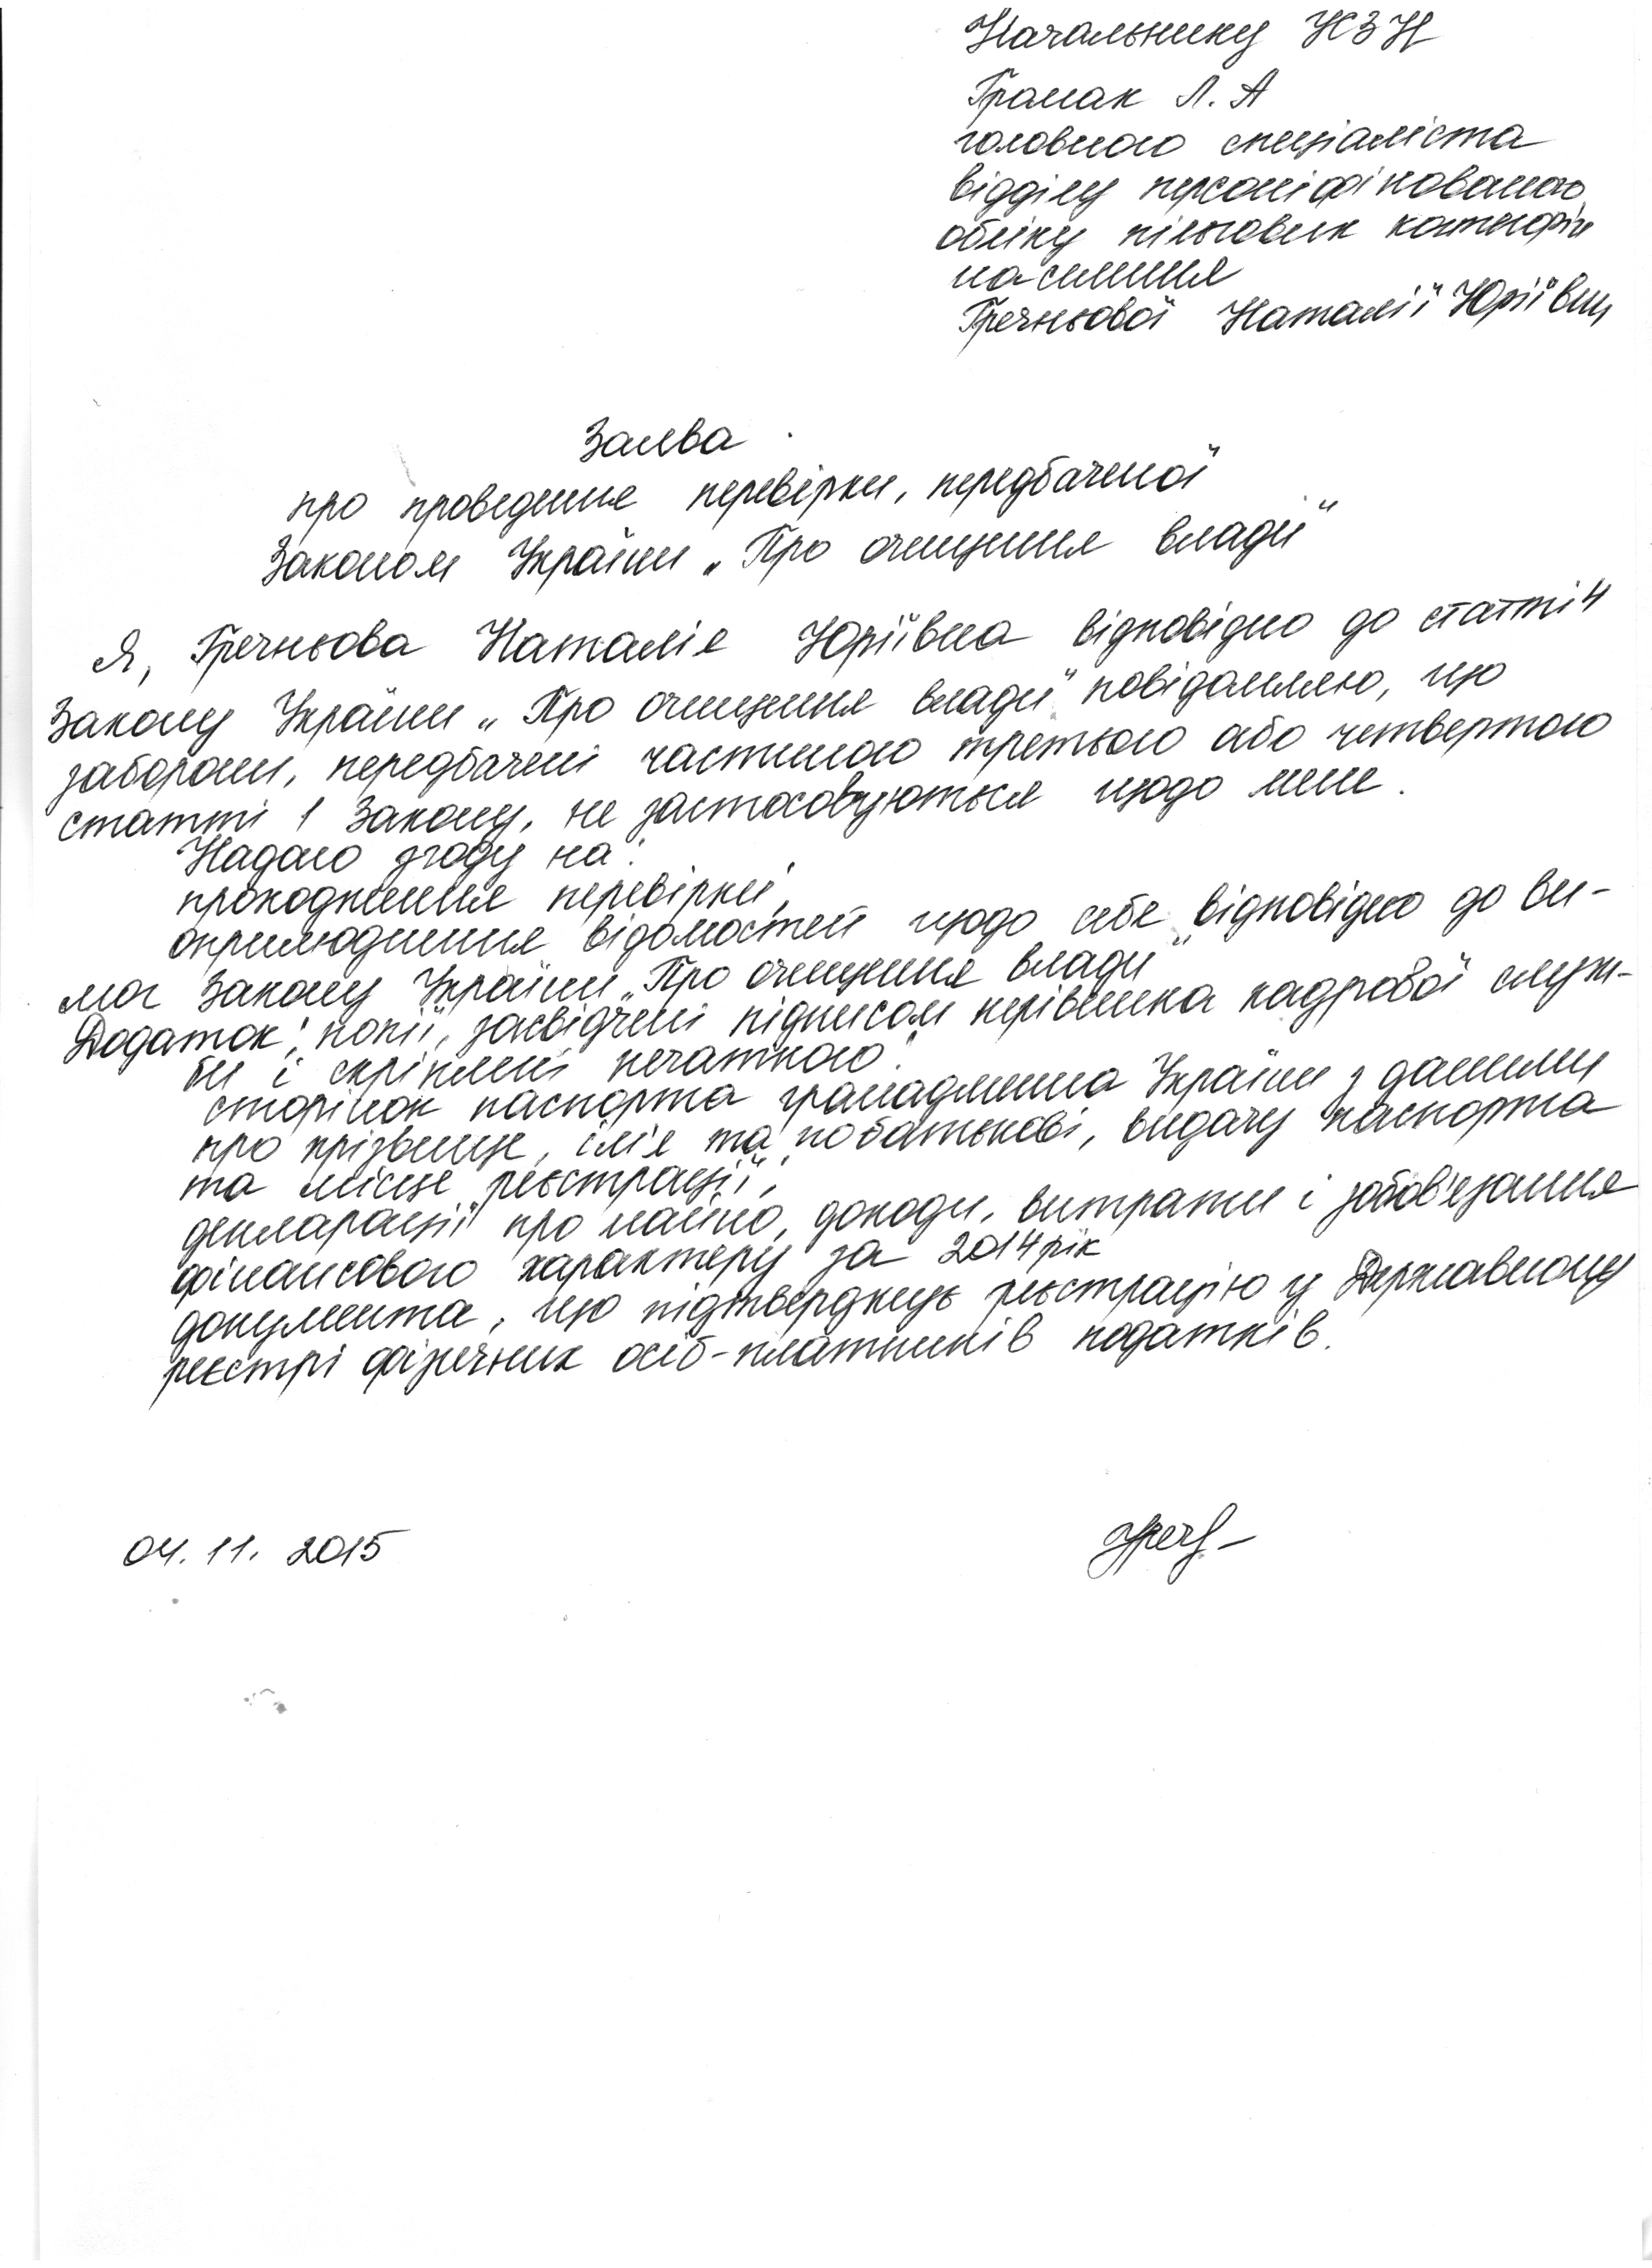 Начальнику УСЗН
Грамак Л. А
головного спеціаліста
відділу персоніфікованого
обліку пільгових категорій
населення
Гречньової Наталії Юріївни
Заява
про проведення перевірки, передбаченої
Законом України „Про очищення влади"
Я, Гречньова Наталія Юріївна відповідно до статті 4
Закону України „Про очищення влади" повідомляю, що
заборони, передбачені частиною третьою або четвертою
статті 1 Закону, не застосовуються щодо мене.
Надаю згоду на:
проходження перевірки;
оприлюднення відомостей щодо себе відповідно до ви-
мог Закону України „Про очищення влади"
Додаток: копії, засвідчені підписом керівника кадрової служ-
би і скріплені печаткою:
сторінок паспорта громадянина України з даними
про прізвище, ім'я та по батькові, видачу паспорта
та місце реєстрації;
декларації про майно, доходи, витрати і зобов'язання
фінансового характеру за 2014 рік
документа, що підтверджує реєстрацію у Державному
реєстрі фізичних осіб-платників податків.
04. 11. 2015